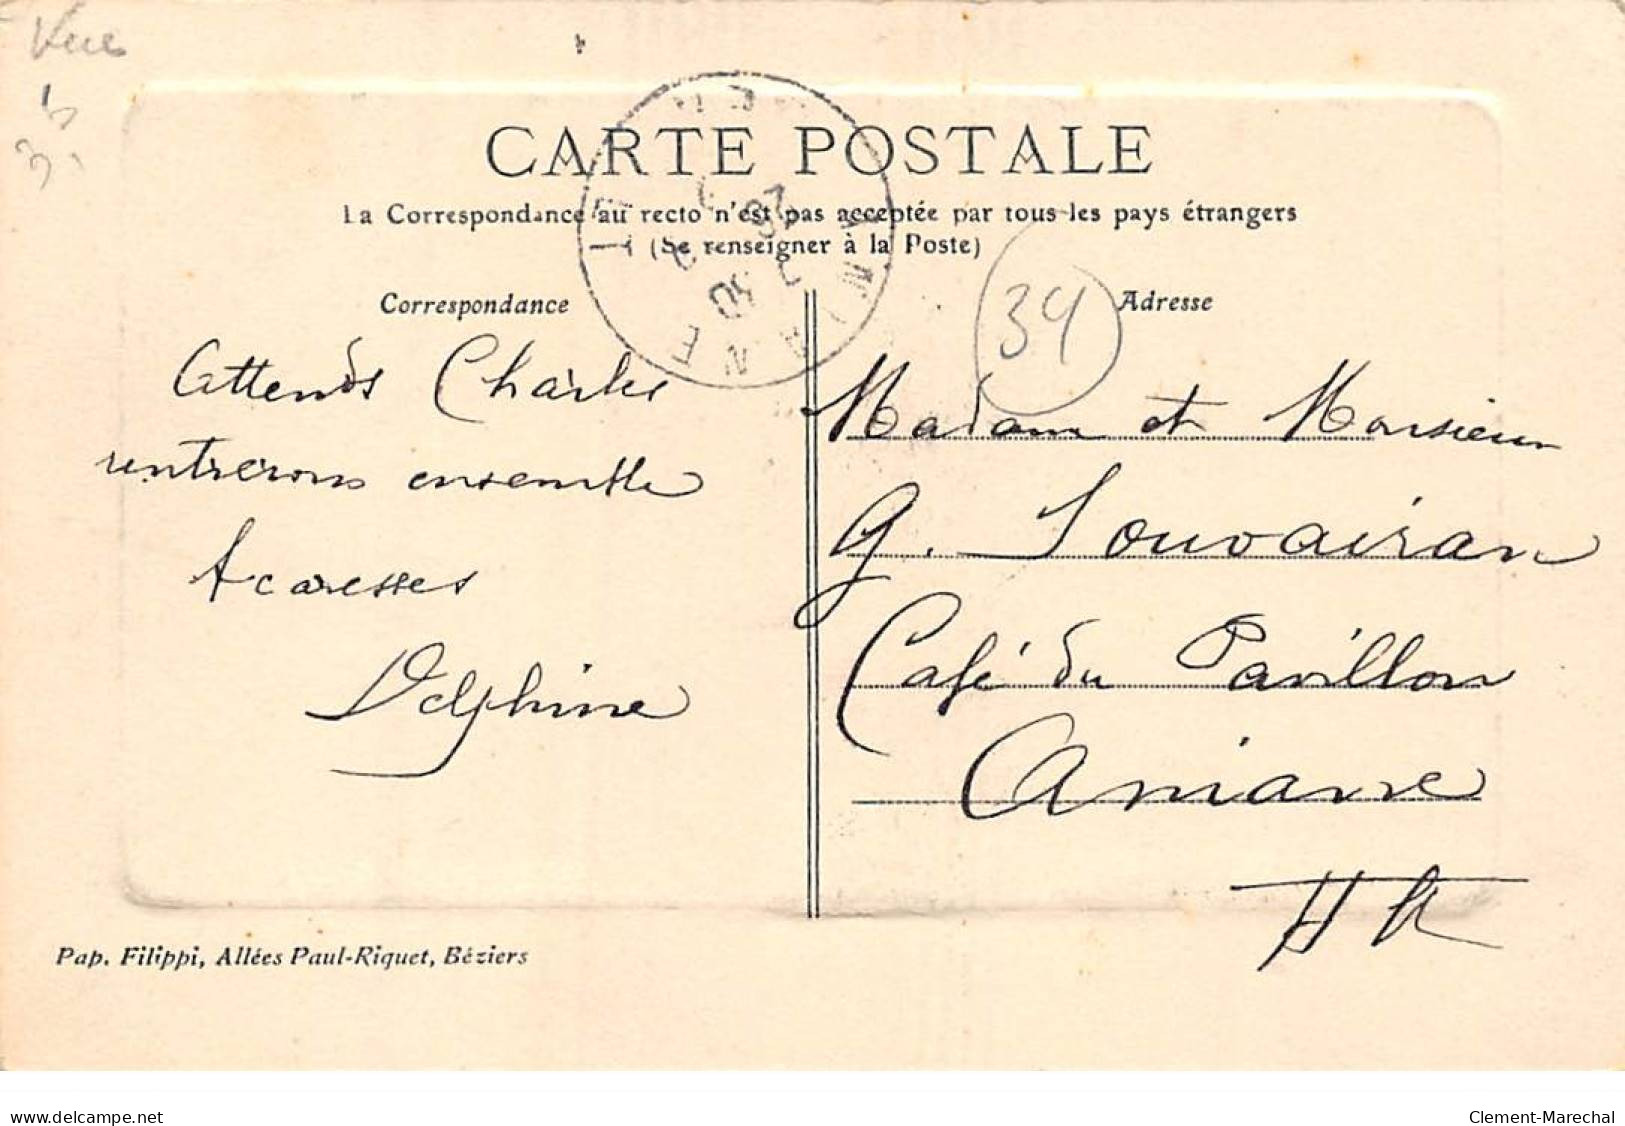 Vue
CARTE POSTALE
La Correspondance au recto n'est pas acceptée par tous les pays étrangers
(Se renseigner à la Poste)
Correspondance
Attends Charles
rentrerons ensemble
Acaresses
Delphine
34
Adresse
Madame et Monsieur
G. Souvairan
Café du Pavillon
Aniane
Hlt
ANIANE
Pap. Filippi, Allées Paul-Riquet, Béziers
www.delcampe.net
Clement-Marechal